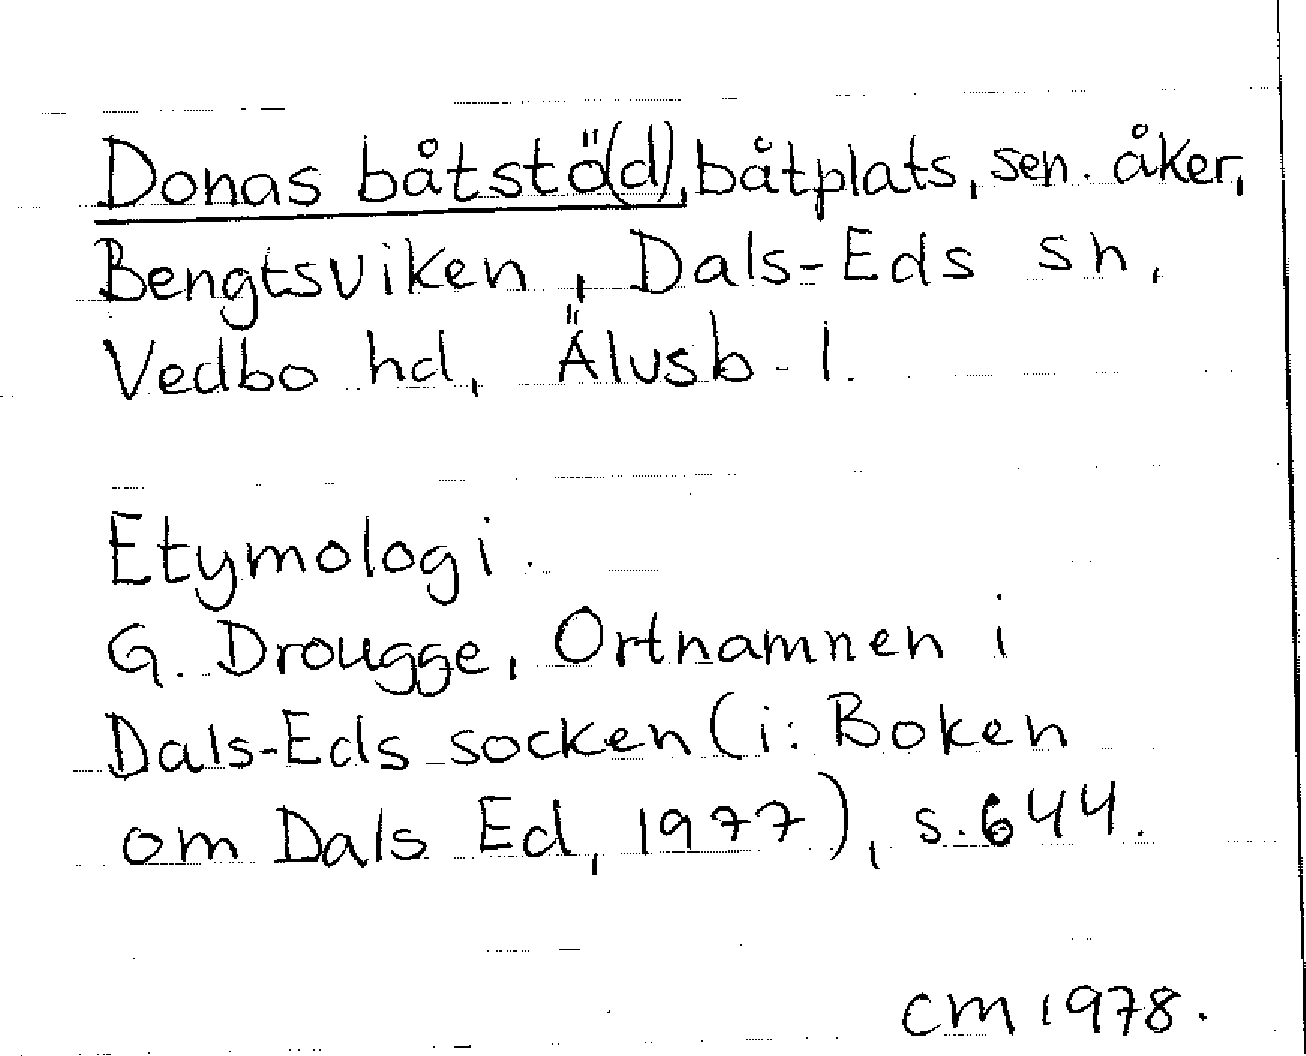 Donas båtstö(d), båtplats, sen. åker,
Bengtsviken, Dals-Eds sn,
Vedbo hd, Älvsb. l.
Etymologi.
G. Drougge, Ortnamnen i
Dals-Eds socken (i: Boken
om Dals Ed, 1977), s. 644.
CM 1978.